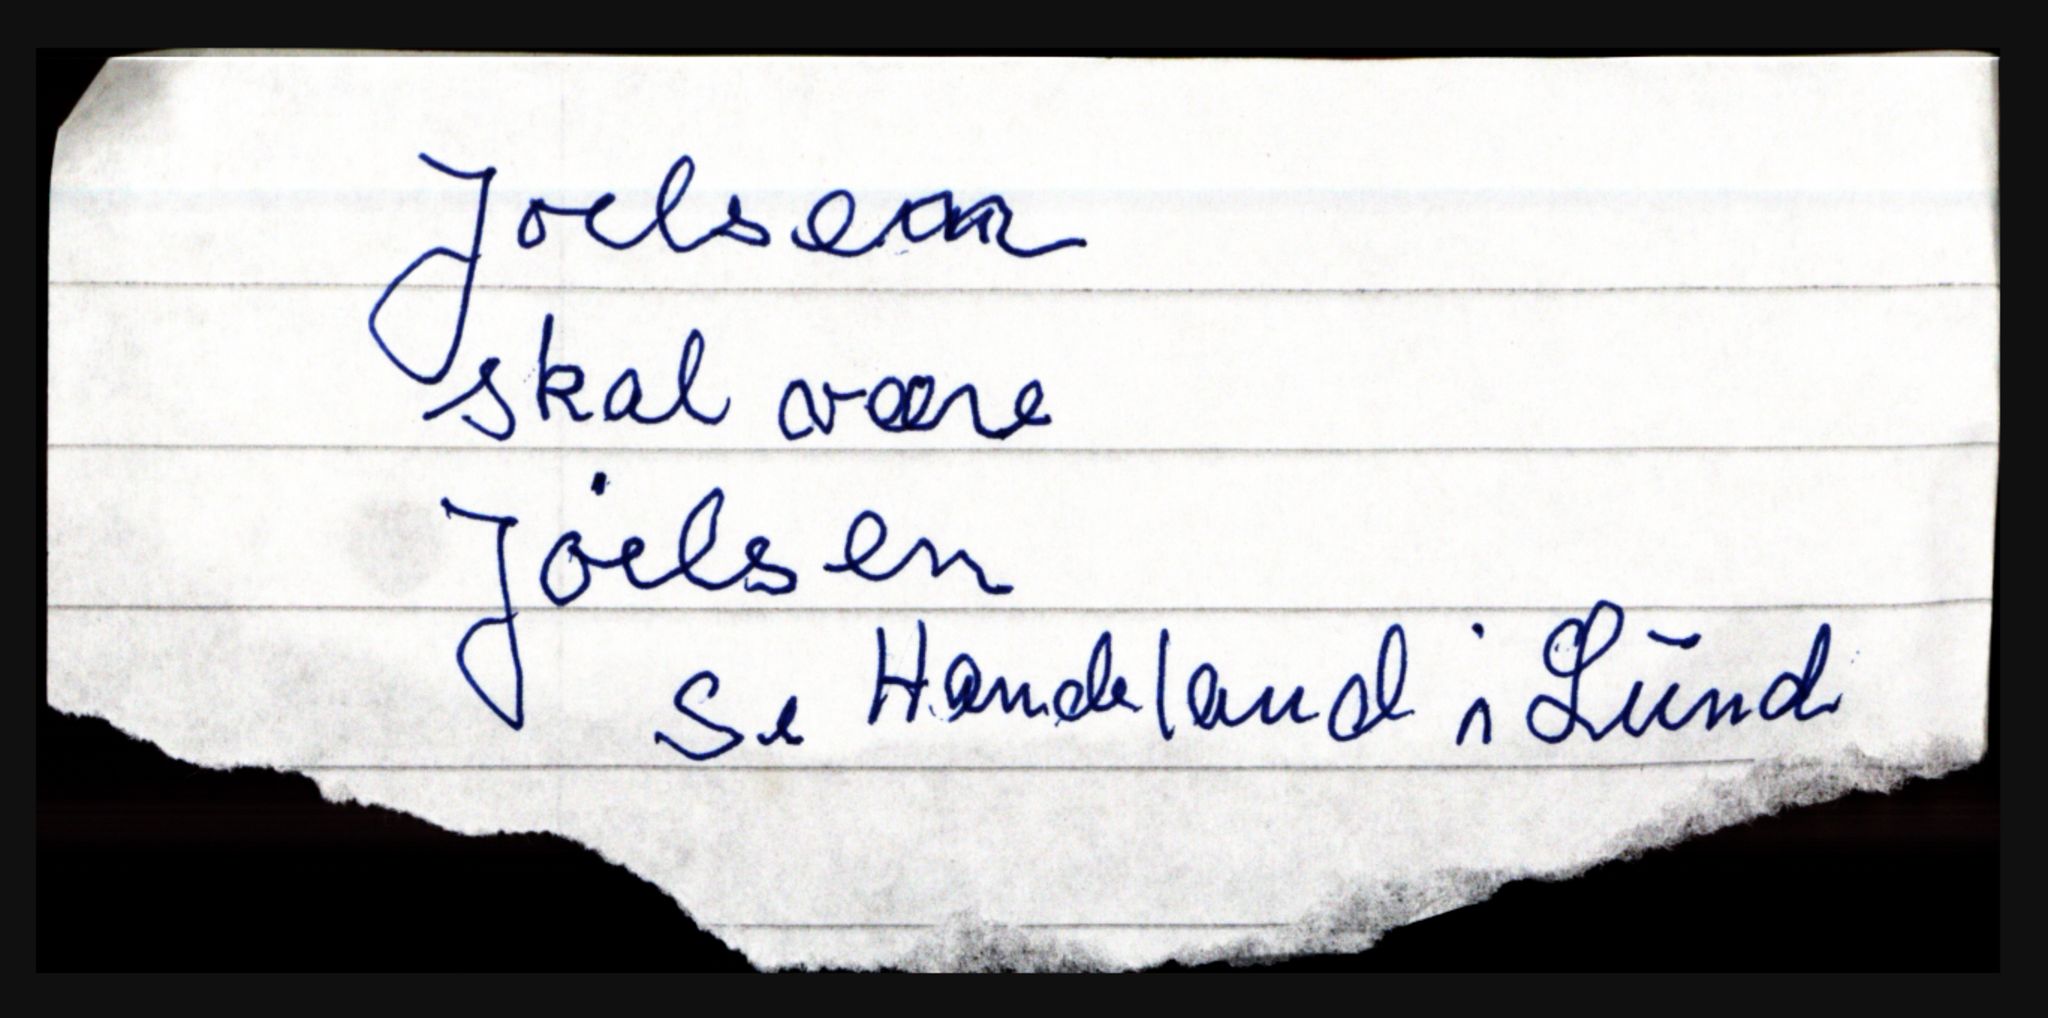 Joelsen
skal være
Jóelsen
Se Handeland i Lund